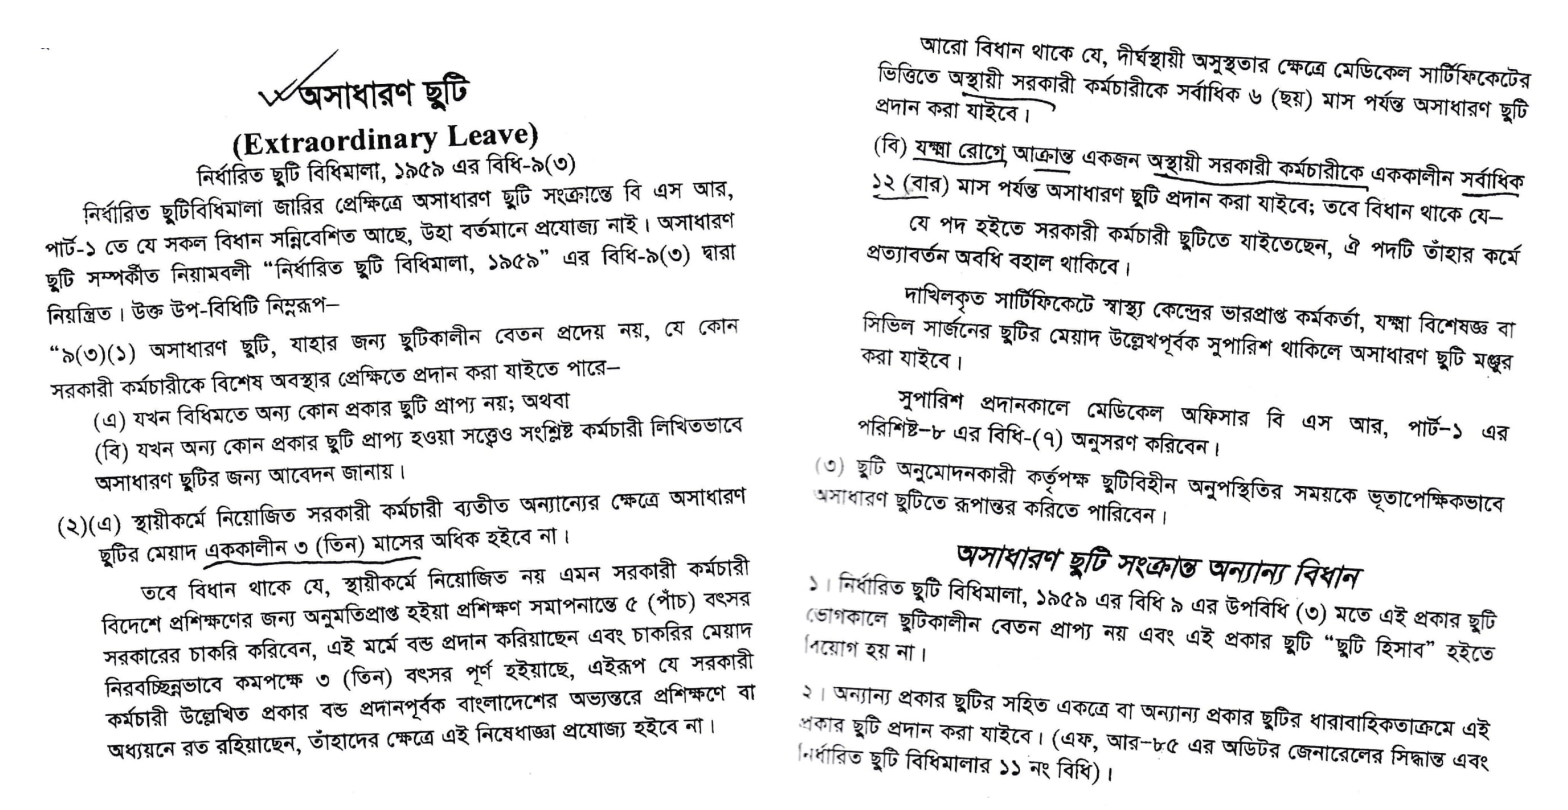 অসাধারণ ছুটি
(Extraordinary Leave)
নির্ধারিত ছুটি বিধিমালা, ১৯৫৯ এর বিধি-৯(৩)
নির্ধারিত ছুটিবিধিমালা জারির প্রেক্ষিত্রে অসাধারণ ছুটি সংক্রান্তে বি এস আর,
পার্ট-১ তে যে সকল বিধান সন্নিবেশিত আছে, উহা বর্তমানে প্রযোজ্য নাই। অসাধারণ
ছুটি সম্পর্কীত নিয়ামবলী “নির্ধারিত ছুটি বিধিমালা, ১৯৫৯” এর বিধি-৯(৩) দ্বারা
নিয়ন্ত্রিত। উক্ত উপ-বিধিটি নিম্নরূপ–
“৯(৩)(১) অসাধারণ ছুটি, যাহার জন্য ছুটিকালীন বেতন প্রদেয় নয়, যে কোন
সরকারী কর্মচারীকে বিশেষ অবস্থার প্রেক্ষিতে প্রদান করা যাইতে পারে–
(এ) যখন বিধিমতে অন্য কোন প্রকার ছুটি প্রাপ্য নয়; অথবা
(বি) যখন অন্য কোন প্রকার ছুটি প্রাপ্য হওয়া সত্ত্বেও সংশ্লিষ্ট কর্মচারী লিখিতভাবে
অসাধারণ ছুটির জন্য আবেদন জানায়।
(২)(এ) স্থায়ীকর্মে নিয়োজিত সরকারী কর্মচারী ব্যতীত অন্যান্যের ক্ষেত্রে অসাধারণ
ছুটির মেয়াদ এককালীন ৩ (তিন) মাসের অধিক হইবে না।
তবে বিধান থাকে যে, স্থায়ীকর্মে নিয়োজিত নয় এমন সরকারী কর্মচারী
বিদেশে প্রশিক্ষণের জন্য অনুমতিপ্রাপ্ত হইয়া প্রশিক্ষণ সমাপনান্তে ৫ (পাঁচ) বৎসর
সরকারের চাকরি করিবেন, এই মর্মে বন্ড প্রদান করিয়াছেন এবং চাকরির মেয়াদ
নিরবচ্ছিন্নভাবে কমপক্ষে ৩ (তিন) বৎসর পূর্ণ হইয়াছে, এইরূপ যে সরকারী
কর্মচারী উল্লেখিত প্রকার বন্ড প্রদানপূর্বক বাংলাদেশের অভ্যন্তরে প্রশিক্ষণে বা
অধ্যয়নে রত রহিয়াছেন, তাঁহাদের ক্ষেত্রে এই নিষেধাজ্ঞা প্রযোজ্য হইবে না।
আরো বিধান থাকে যে, দীর্ঘস্থায়ী অসুস্থতার ক্ষেত্রে মেডিকেল সার্টিফিকেটের
ভিত্তিতে অস্থায়ী সরকারী কর্মচারীকে সর্বাধিক ৬ (ছয়) মাস পর্যন্ত অসাধারণ ছুটি
প্রদান করা যাইবে।
(বি) যক্ষ্মা রোগে আক্রান্ত একজন অস্থায়ী সরকারী কর্মচারীকে এককালীন সর্বাধিক
১২ (বার) মাস পর্যন্ত অসাধারণ ছুটি প্রদান করা যাইবে; তবে বিধান থাকে যে–
যে পদ হইতে সরকারী কর্মচারী ছুটিতে যাইতেছেন, ঐ পদটি তাঁহার কর্মে
প্রত্যাবর্তন অবধি বহাল থাকিবে।
দাখিলকৃত সার্টিফিকেটে স্বাস্থ্য কেন্দ্রের ভারপ্রাপ্ত কর্মকর্তা, যক্ষ্মা বিশেষজ্ঞ বা
সিভিল সার্জনের ছুটির মেয়াদ উল্লেখপূর্বক সুপারিশ থাকিলে অসাধারণ ছুটি মঞ্জুর
করা যাইবে।
সুপারিশ প্রদানকালে মেডিকেল অফিসার বি এস আর, পার্ট-১ এর
পরিশিষ্ট–৮ এর বিধি-(৭) অনুসরণ করিবেন।
(৩) ছুটি অনুমোদনকারী কর্তৃপক্ষ ছুটিবিহীন অনুপস্থিতির সময়কে ভূতাপেক্ষিকভাবে
অসাধারণ ছুটিতে রূপান্তর করিতে পারিবেন।
অসাধারণ ছুটি সংক্রান্ত অন্যান্য বিধান
১। নির্ধারিত ছুটি বিধিমালা, ১৯৫৯ এর বিধি ৯ এর উপবিধি (৩) মতে এই প্রকার ছুটি
ভোগকালে ছুটিকালীন বেতন প্রাপ্য নয় এবং এই প্রকার ছুটি “ছুটি হিসাব” হইতে
বিয়োগ হয় না।
২। অন্যান্য প্রকার ছুটির সহিত একত্রে বা অন্যান্য প্রকার ছুটির ধারাবাহিকতাক্রমে এই
প্রকার ছুটি প্রদান করা যাইবে। (এফ, আর–৮৫ এর অডিটর জেনারেলের সিদ্ধান্ত এবং
নির্ধারিত ছুটি বিধিমালার ১১ নং বিধি)।